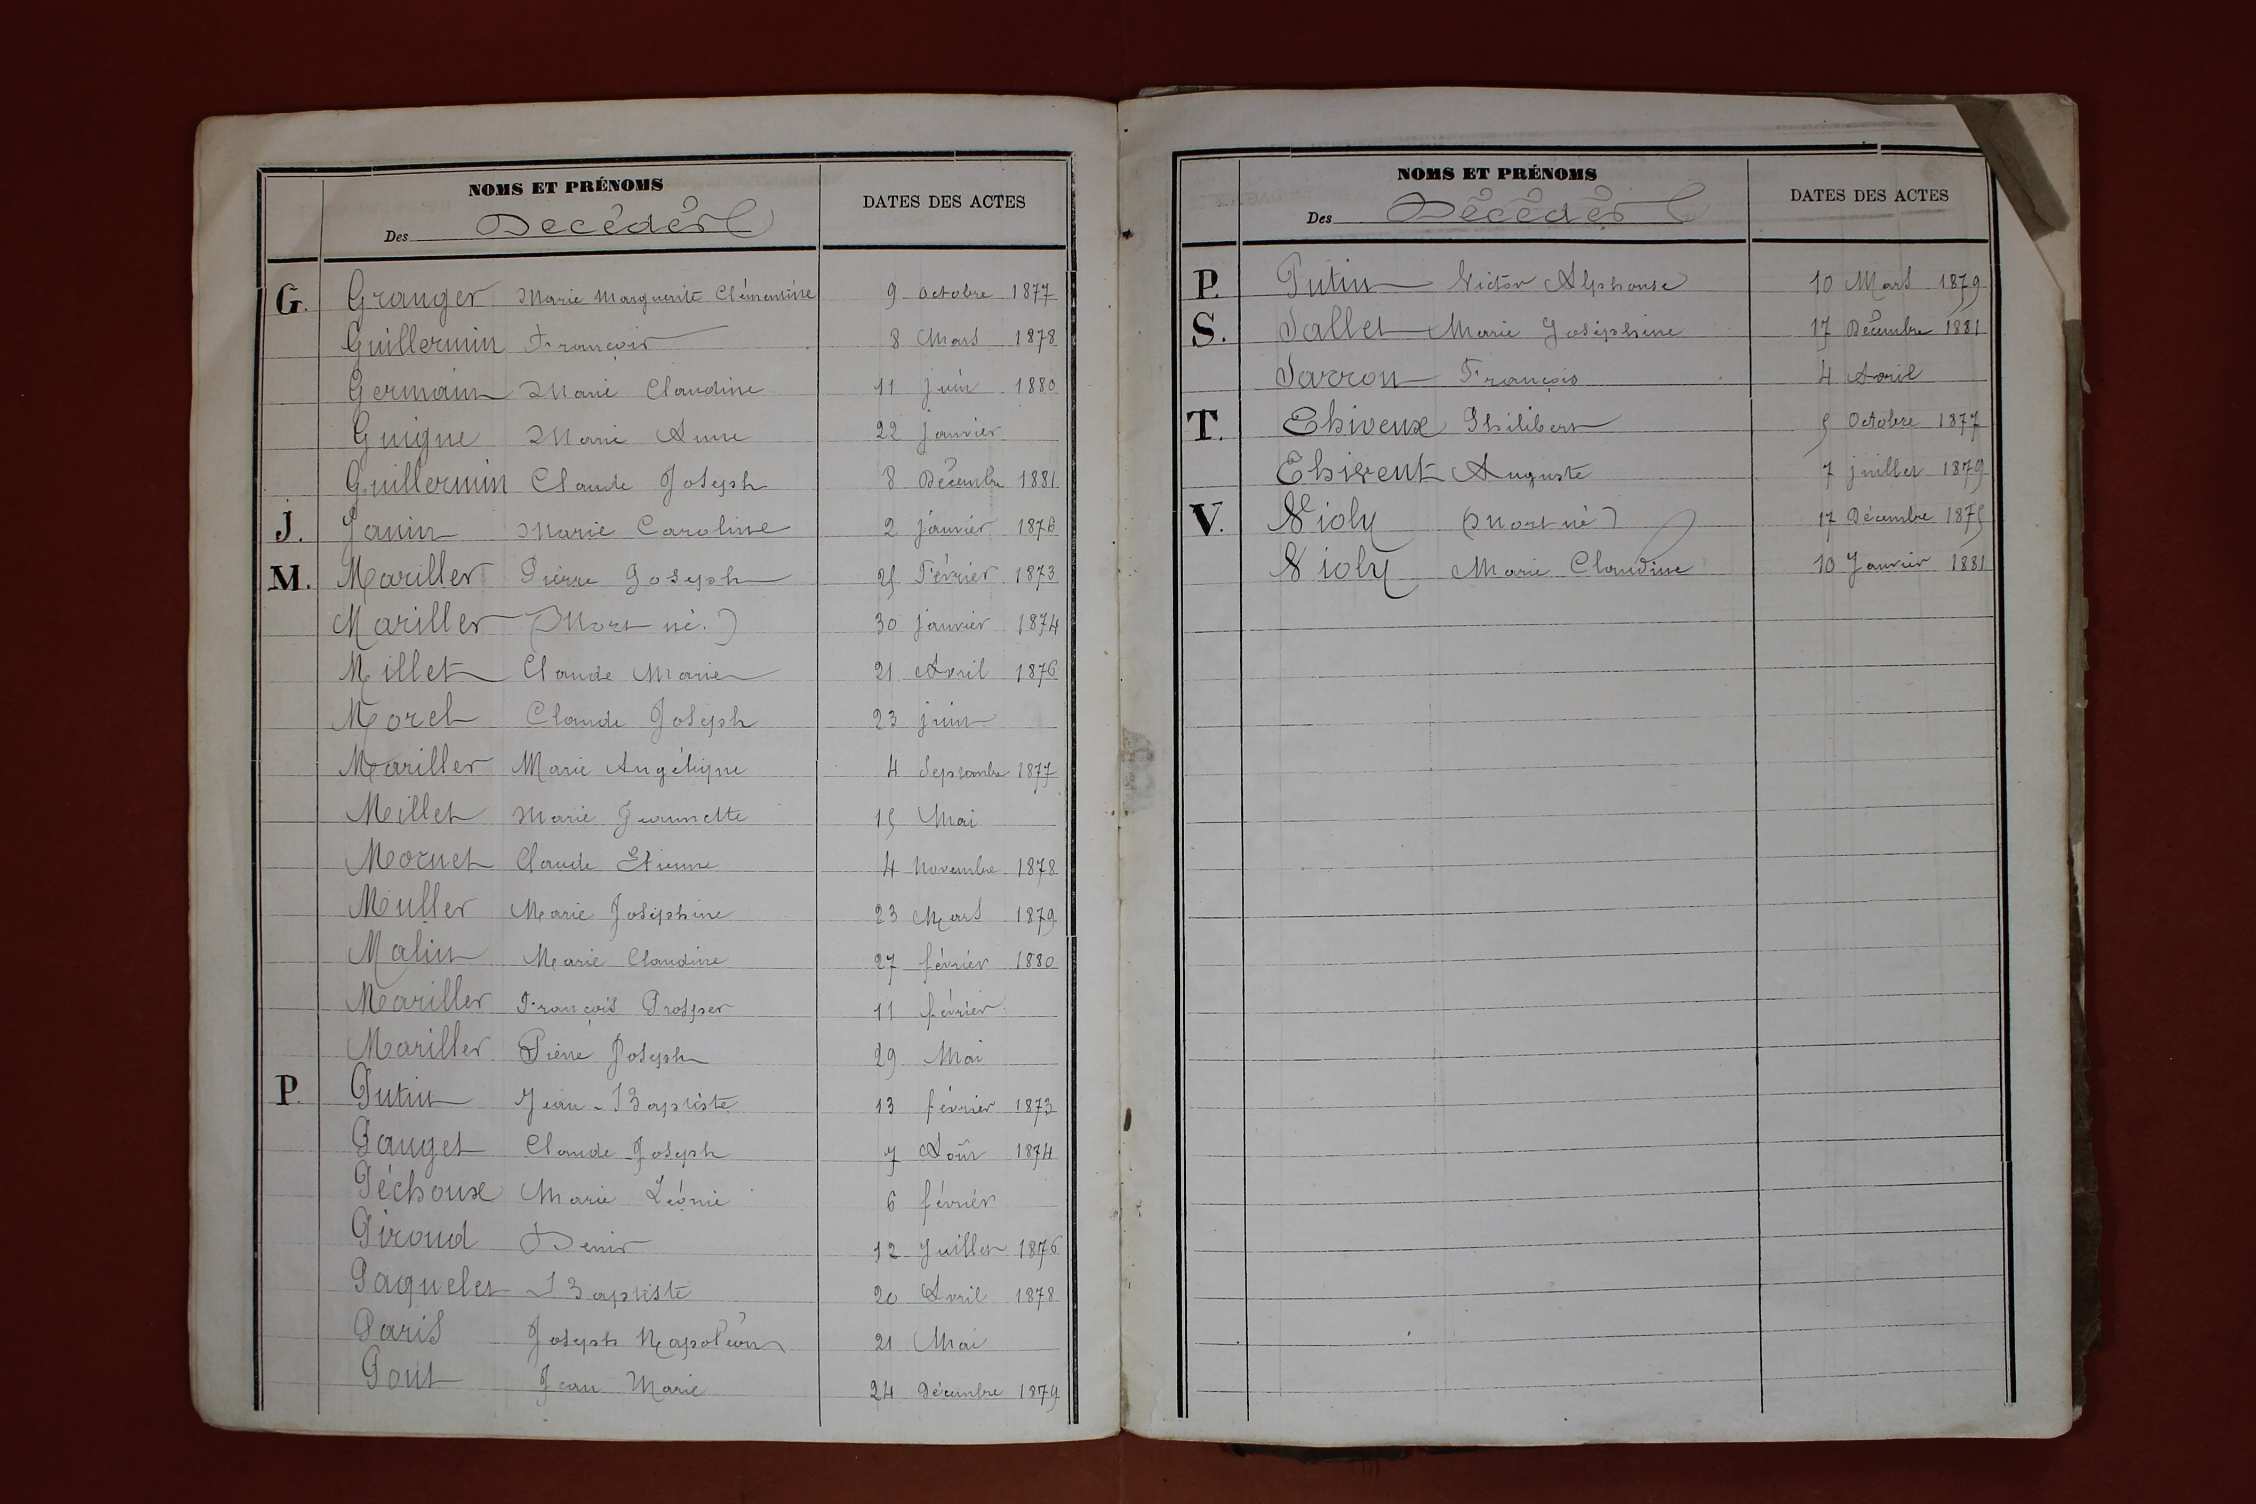 NOMS ET PRÉNOMS
Des Décédés
DATES DES ACTES
G. Granger Marie Marguerite Clémentine 9 Octobre 1877
Guillermin François 8 Mars 1878
Germain Marie Claudine 11 juin 1880
Guigue Marie Anne 22 janvier
Guillermin Claude Joseph 8 Décembre 1881
J. Janin Marie Caroline 2 janvier 1876
M. Mariller Pierre Joseph 25 Février 1873
Mariller (Mort né.) 30 janvier 1874
Millet Claude Marie 21 Avril 1876
Morel Claude Joseph 23 juin
Mariller Marie Angélique 4 Septembre 1877
Millet Marie Jeannette 15 Mai
Mornet Claude Etienne 4 Novembre 1878
Muller Marie Joséphine 23 Mars 1879
Malin Marie Claudine 27 février 1880
Mariller François Prosper 11 février
Mariller Pierre Joseph 29 Mai
P. Putin Jean-Baptiste 13 février 1873
Pauget Claude Joseph 7 Août 1874
Péchoux Marie Léonie 6 février
Piroud Denis 12 Juillet 1876
Paquelet Baptiste 20 Avril 1878
Paris Joseph Napoléon 21 Mai
Pont Jean Marie 24 Décembre 1879
NOMS ET PRÉNOMS
Des Décédés
DATES DES ACTES
P. Putin Victor Alphonse 10 Mars 1879
S. Sallet Marie Joséphine 17 Décembre 1881
Sarron François 4 Avril
T. Thiveux Philibert 5 Octobre 1877
Thivent Auguste 7 juillet 1879
V. Violy (Mort né) 17 Décembre 1875
Violy Marie Claudine 10 Janvier 1881